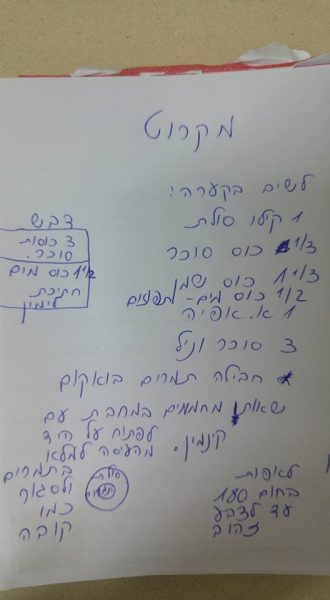 מקרוט
לשים בקערה:
1 קילו סולת
1/3 כוס סוכר
1 1/3 כוס שמן
1/2 כוס מים - לפעמים
1 א. אפיה
3 סוכר וניל
חבילה תמרים בואקום
שאותן מחממים במחבת עם
קינמון. לפתוח על היד
מהעיסה למלא
בתמרים
ולסגור
כמו
קובה
סולת
תמרים
לאפות
בחום 180
עד לצבע
זהוב
דבש
3 כוסות
סוכר.
1 1/2 כוס מים
חתיכת
לימון